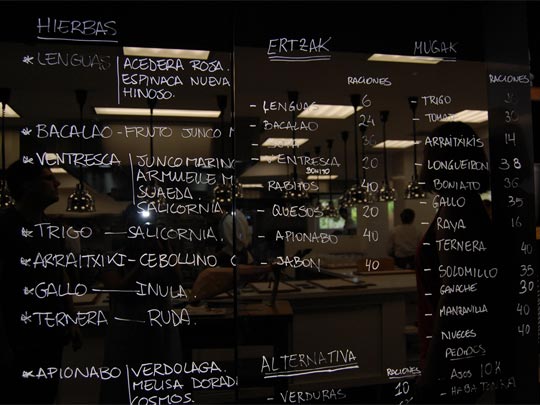 HIERBAS
* LENGUAS | ACEDERA ROJA.
ESPINACA NUEVA
HINOJO.
* BACALAO - FRUTO JUNCO M
* VENTRESCA | JUNCO MARINO
ARMUELLE M
SUAEDA
SALICORNIA.
* TRIGO — SALICORNIA.
* ARRAITXIKI - CEBOLLINO C
* GALLO — INULA.
* TERNERA — RUDA.
* APIONABO | VERDOLAGA.
MELISA DORADA
COSMOS.
ERTZAK
RACIONES
- LENGUAS 6
- BACALAO 24
- VENTRESCA 20
BONITO
- RABITOS 40
- QUESOS 20
- APIONABO 40
- JABON 40
ALTERNATIVA
RACIONES
- VERDURAS 10
MUGAK
RACIONES
- TRIGO
- TOMATE
- ARRAITXIKIS 14
- LONGUEIRON 38
- BONIATO 36
- GALLO 35
- RAYA 16
- TERNERA 40
- SOLOMILLO 35
- GANACHE 30
- MANZANILLA 40
- NIEVES 40
PEDIDOS
- AJOS 10K
- HABA TONKA